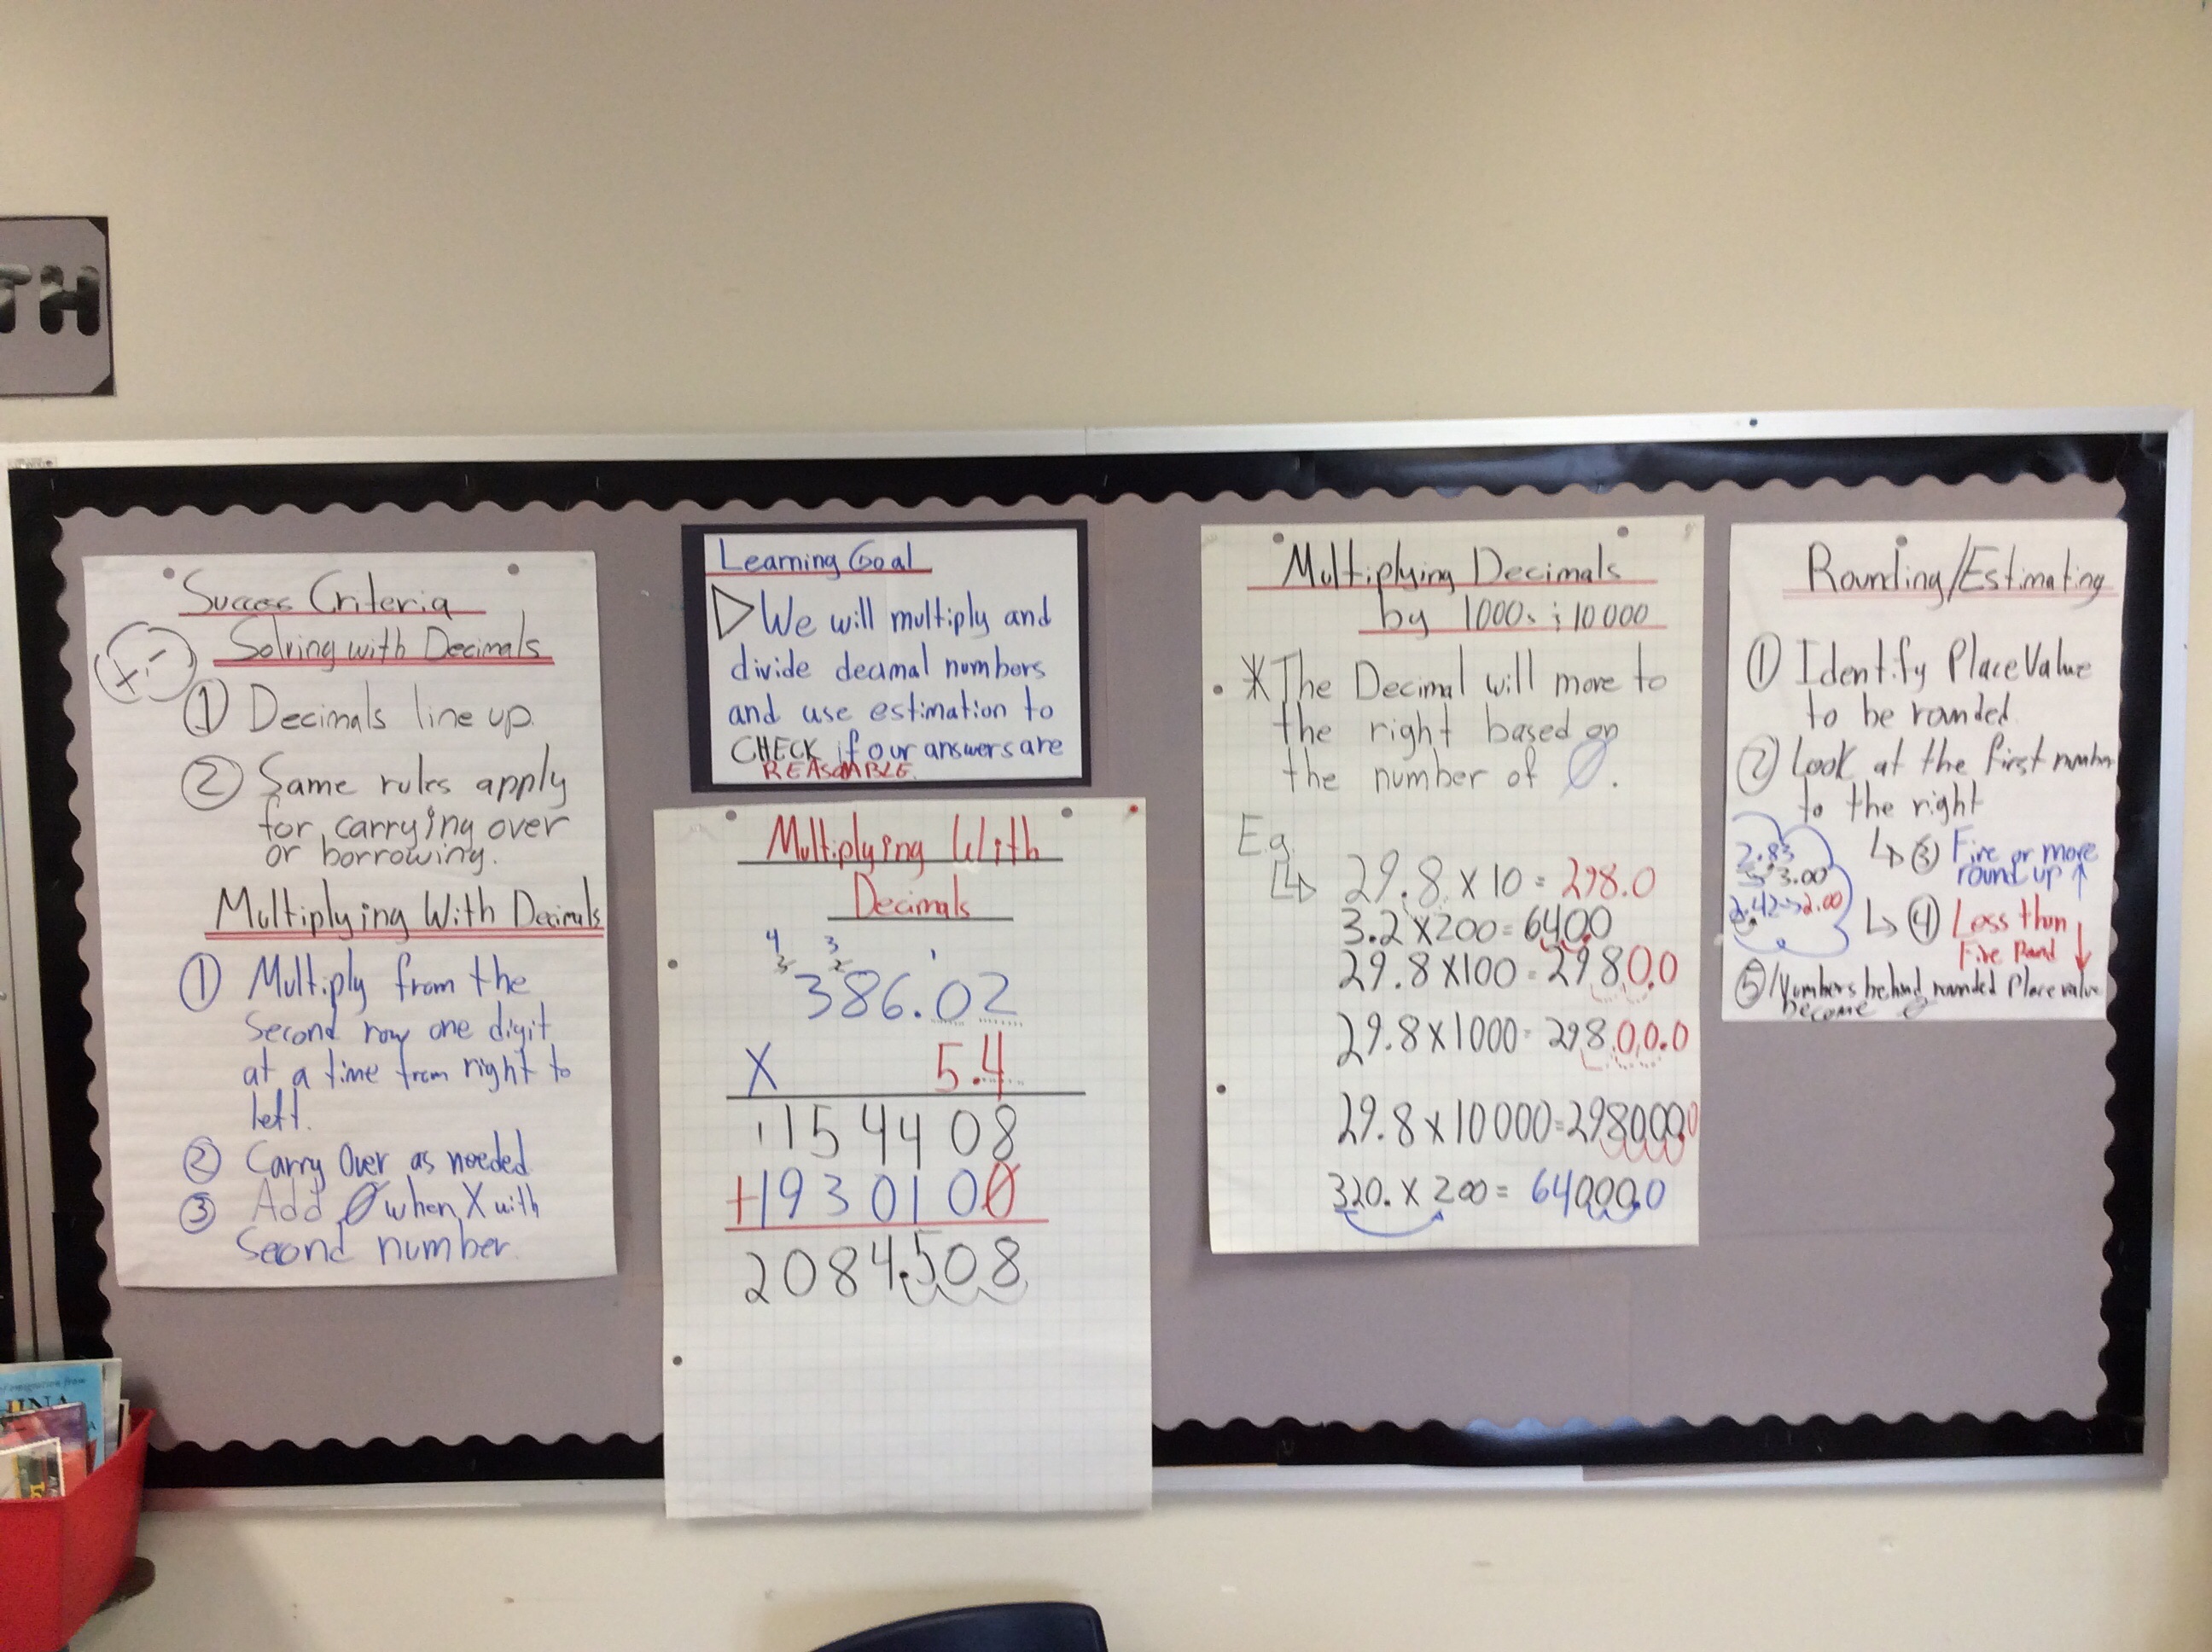 TH
Success Criteria
Solving with Decimals
+ -
① Decimals line up.
② Same rules apply
for carrying over
or borrowing.
Multiplying With Decimals
① Multiply from the
second row one digit
at a time from right to
left.
② Carry Over as needed
③ Add 0 when X with
Second number.
Learning Goal
We will multiply and
divide decimal numbers
and use estimation to
CHECK if our answers are
REASONABLE.
Multiplying With
Decimals
4 3 1
3 2
386.02
X 5.4
1154408
+1930100
2084.508
Multiplying Decimals
by 1000s ; 10 000
• * The Decimal will move to
the right based on
the number of 0.
E.g
29.8 x 10 = 298.0
3.2 x 200 = 6400
29.8 x 100 = 2980.0
29.8 x 1000 = 298.0.0.0
29.8 x 10 000 = 298000.0
320. x 200 = 64000.0
Rounding/Estimating
① Identify Place Value
to be rounded
② Look at the first number
to the right
③ Five or more
round up ↑
2.83
→ 3.00
2.42 → 2.00
④ Less than
Five Round ↓
⑤ Numbers behind rounded Place value
become 0